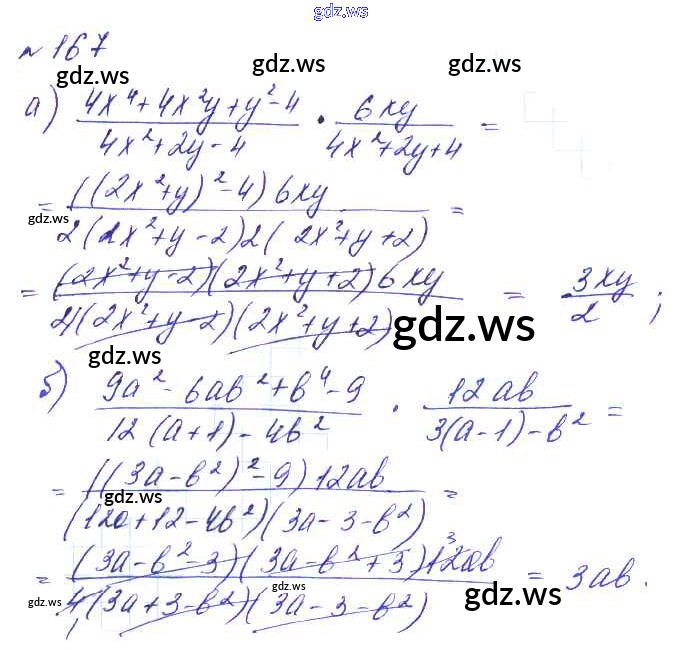 gdz.ws
№ 167
gdz.ws gdz.ws gdz.ws
а) (4x⁴+4x²y+y²-4)/(4x²+2y-4) · 6xy/(4x²+2y+4) =
= ((2x²+y)²-4)6xy / 2(2x²+y-2)2(2x²+y+2) =
gdz.ws gdz.ws
= (2x²+y-2)(2x²+y+2)6xy / 4(2x²+y-2)(2x²+y+2) = 3xy/2 ;
gdz.ws gdz.ws
б) (9a²-6ab²+b⁴-9)/(12(a+1)-4b²) · 12ab/(3(a-1)-b²) =
gdz.ws gdz.ws
= ((3a-b²)²-9)12ab / (12a+12-4b²)(3a-3-b²) =
gdz.ws
= (3a-b²-3)(3a-b²+3)12ab / 4(3a+3-b²)(3a-3-b²) = 3ab.
gdz.ws gdz.ws gdz.ws